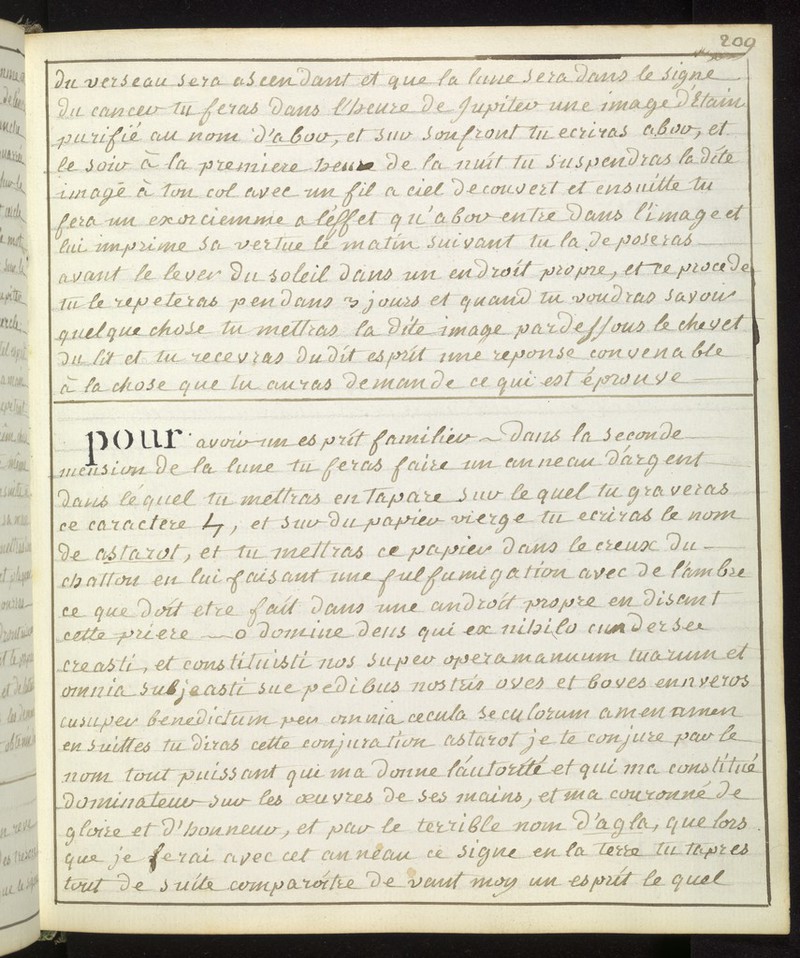 209
du verseau sera ascendant et que la lune sera dans le signe
du cancer tu feras dans l'heure de Jupiter une image d'Etain
purifié au nom d'abov, et sur son front tu ecriras abov, et
le soir à la premiere heure de la nuit tu suspendras la dite
image à ton col avec un fil a ciel decouvert et ensuitte tu
fera un exorciemme a l'éffet qu'abov entre dans l'image et
lui imprime sa vertue le matin suivant tu la deposeras
avant le lever du soleil dans un endroit propre, et ce procede
tu le repeteras pendans 3 jours et quand tu voudras savoir
quelque chose tu mettras la dite image pardessous le chevet
du lit et tu recevras dudit esprit une reponse convenable
à la chose que tu auras demande ce qui est éprouve
pour avoir un esprit familier ~ dans la seconde
mension de la lune tu feras faire un anneau d'argent
dans léquel tu mettras en tapare sur le quel tu graveras
ce caractere 4, et sur du papier vierge tu ecriras le nom
de astarot, et tu mettras ce papier dans le creux du
chatton en lui faisant une fulfumigation avec de l'ambre
ce que doit etre fait dans une androit propre en disant
cette priere ~ o domine deus qui ex nihilo cundersee
creasti, et constituisti nos super opera manuum tuarum et
omnia subjeasti sue pedibus nostris oves et boves ennveros
cusuper benedictum per omnia cecula seculorum amen amen
ensuittes tu diras cette conjuration astarot je te conjure par le
nom tout puissant qui ma donne l'áutorité et qui ma constitué
dominateur sur les œuvres de ses mains, et ma couronné de
gloire et d'honneur, et par le terrible nom d'agla, que lors
que je ferai avec cet anneau ce signe en la terre tu tapres
tout de suite comparoitre devant moy un esprit le quel